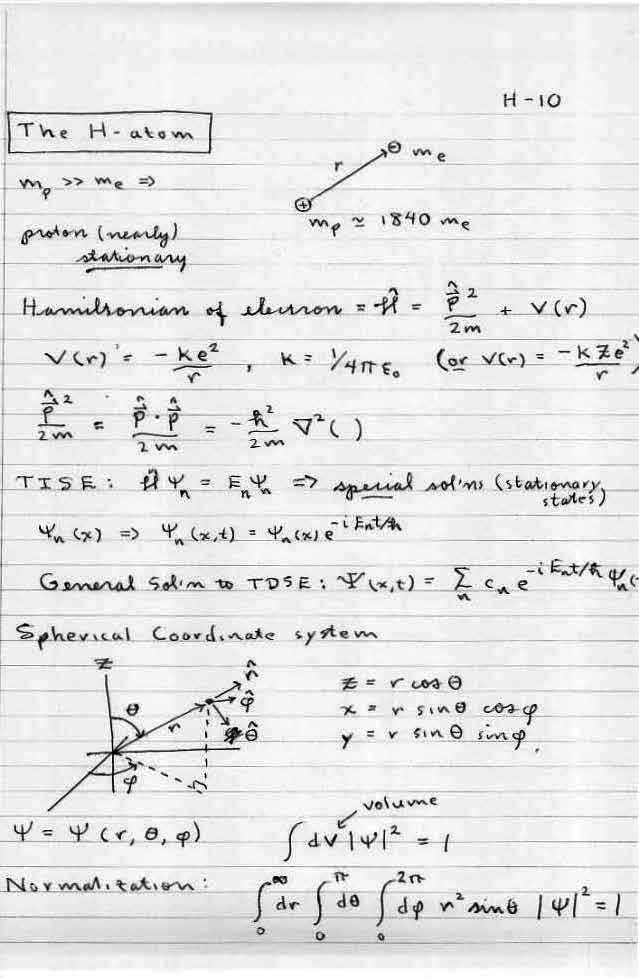 H-10
The H-atom
r ⊖ me
mp >> me ⇒
⊕ mp ≃ 1840 me
proton (nearly)
stationary
Hamiltonian of electron = Ĥ = p̂²/2m + V(r)
V(r) = -ke²/r , K = 1/4πε₀ (or V(r) = -KZe²/r)
p̂²/2m = p̂·p̂/2m = -ħ²/2m ∇²( )
TISE: Ĥ Ψn = En Ψn ⇒ special sol'ns (stationary states)
Ψn(x) ⇒ Ψn(x,t) = Ψn(x) e^-iEnt/ħ
General Sol'n to TDSE: Ψ(x,t) = Σn cn e^-iEnt/ħ Ψn(
Spherical Coordinate system
z
r̂
θ r φ̂
θ̂
φ
z = r cosθ
x = r sinθ cosφ
y = r sinθ sinφ.
volume
Ψ = Ψ(r, θ, φ) ∫dV |Ψ|² = 1
Normalization: ∫₀^∞ dr ∫₀^π dθ ∫₀^2π dφ r² sinθ |Ψ|² = 1